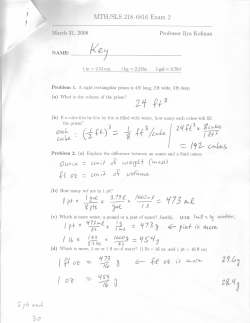 MTH/SLS 218-6816 Exam 2
March 31, 2008 Professor Ilya Kofman
NAME: Key
1 in = 2.54cm, 1kg = 2.20lb 1gal = 3.79ℓ
Problem 1. A right rectangular prism is 4ft long, 2ft wide, 3ft deep.
(a) What is the volume of the prism?
24 ft³
(b) If a cube 6in by 6in by 6in is filled with water, how many such cubes will fill
the prism?
each cube: (½ ft)³ = 1/8 ft³/cube
24 ft³ × 8 cubes / 1 ft³
= 192 cubes
Problem 2. (a) Explain the difference between an ounce and a fluid ounce.
Ounce = unit of weight (mass)
fl oz = unit of volume
(b) How many mℓ are in 1 pt?
1 pt × 1 gal / 8 pts × 3.79 ℓ / gal × 1000 ml / 1 ℓ = 473 ml
(c) Which is more water, a pound or a pint of water? Justify.
1 pt × 473 ml / pt × 1g / 1 ml = 473 g ← pint is more
1 lb × 1 kg / 2.20 lb × 1000g / kg = 454 g
(d) Which is more, 1 oz or 1 fl oz of water? (1 lb = 16 oz, and 1 pt = 16 fl oz)
1 fl oz = 473 / 16 g ← fl oz is more 29.6g
1 oz = 454 / 16 g 28.4g
5 pt each
30